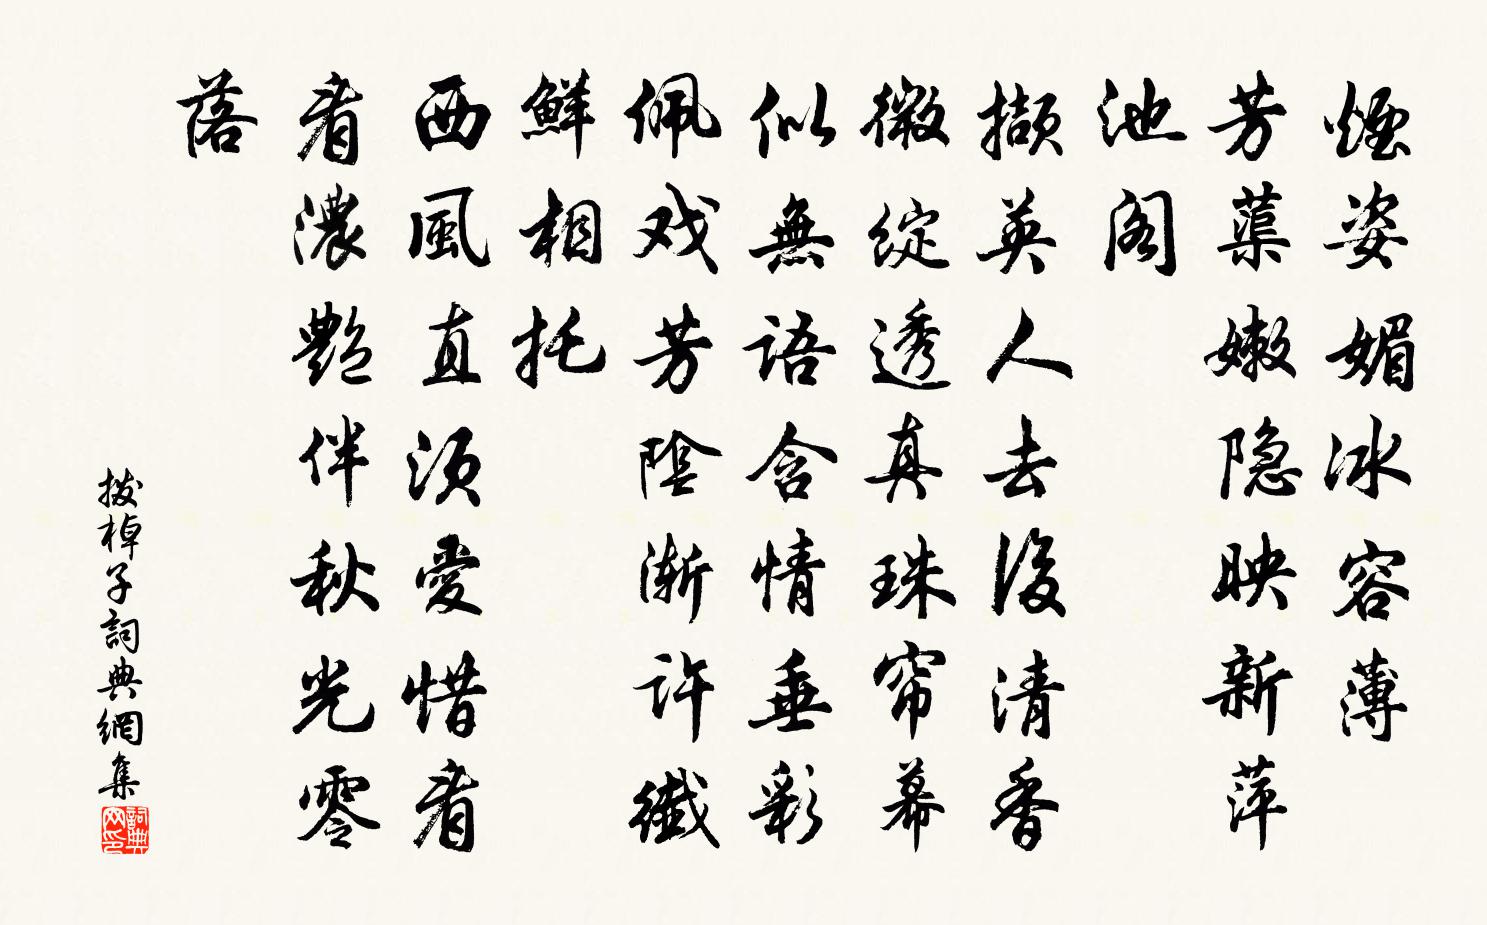 煙姿媚冰容薄
芳蕖嫩隐映新萍
池阁
撷英人去後清香
微绽透真珠帘幕
似無語含情垂彩
佩戏芳陰渐许纖
鮮相托
西風直须愛惜看
看濃艷伴秋光零
落
拨棹子詞典網集
詞典网印